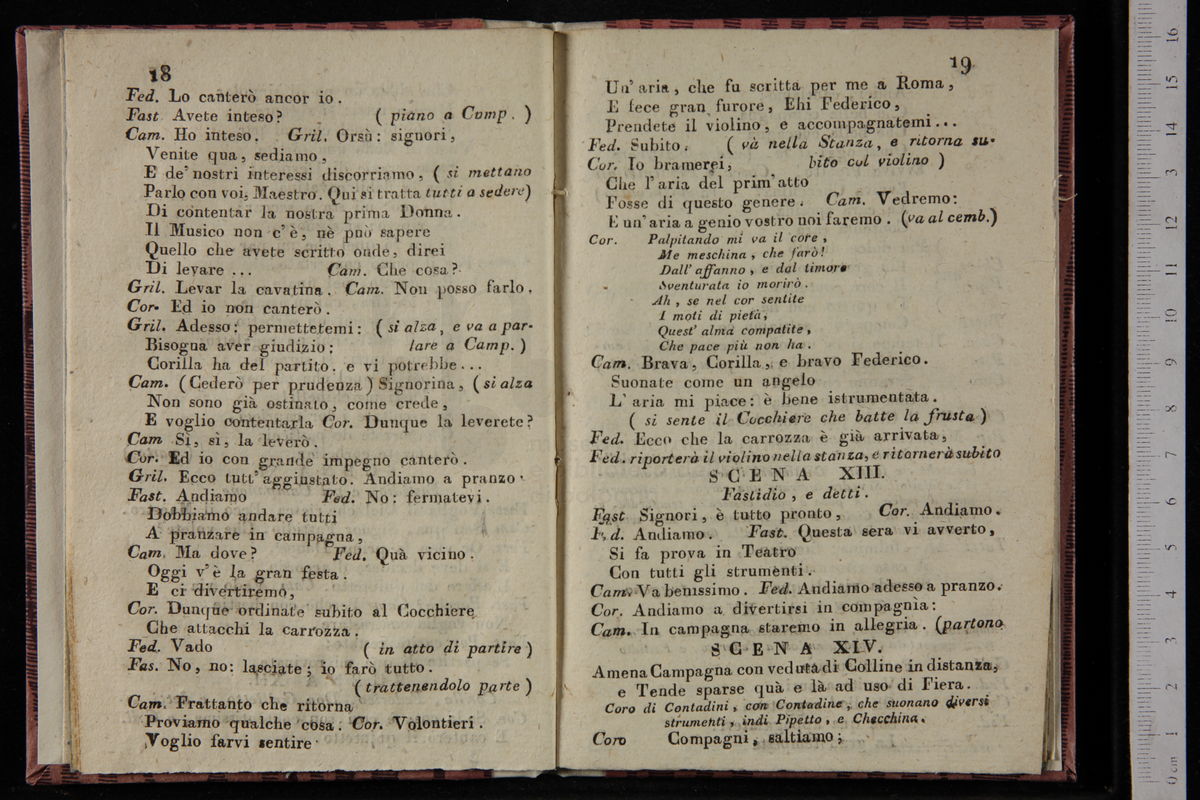 18
Fed. Lo canterò ancor io.
Fast Avete inteso? ( piano a Camp. )
Cam. Ho inteso. Gril. Orsù: signori,
Venite qua, sediamo,
E de' nostri interessi discorriamo, ( si mettano
Parlo con voi, Maestro. Qui si tratta tutti a sedere)
Di contentar la nostra prima Donna.
Il Musico non c'è, nè può sapere
Quello che avete scritto onde, direi
Di levare ... Cam. Che cosa?
Gril. Levar la cavatina. Cam. Non posso farlo.
Cor. Ed io non canterò.
Gril. Adesso: permettetemi: ( si alza, e va a par-
Bisogna aver giudizio: lare a Camp. )
Corilla ha del partito, e vi potrebbe...
Cam. (Cederò per prudenza) Signorina, (si alza
Non sono già ostinato, come crede,
E voglio contentarla Cor. Dunque la leverete?
Cam Si, sì, la leverò.
Cor. Ed io con grande impegno canterò.
Gril. Ecco tutt' aggiustato. Andiamo a pranzo.
Fast. Andiamo Fed. No: fermatevi.
Dobbiamo andare tutti
A pranzare in campagna,
Cam. Ma dove? Fed. Quà vicino.
Oggi v'è la gran festa.
E ci divertiremo,
Cor. Dunque ordinate subito al Cocchiere
Che attacchi la carrozza.
Fed. Vado ( in atto di partire )
Fas. No, no: lasciate; io farò tutto.
( trattenendolo parte )
Cam. Frattanto che ritorna
Proviamo qualche cosa. Cor. Volontieri.
Voglio farvi sentire
19
Un' aria, che fu scritta per me a Roma,
E fece gran furore, Ehi Federico,
Prendete il violino, e accompagnatemi...
Fed. Subito. ( và nella Stanza, e ritorna su-
Cor. Io bramerei, bito col violino )
Che l'aria del prim' atto
Fosse di questo genere. Cam. Vedremo:
E un' aria a genio vostro noi faremo. (va al cemb.)
Cor. Palpitando mi va il core,
Me meschina, che farò!
Dall' affanno, e dal timore
Sventurata io morirò.
Ah, se nel cor sentite
I moti di pietà,
Quest' alma compatite,
Che pace più non ha.
Cam. Brava, Corilla, e bravo Federico.
Suonate come un angelo
L' aria mi piace: è bene istrumentata.
( si sente il Cocchiere che batte la frusta )
Fed. Ecco che la carrozza è già arrivata,
Fed. riporterà il violino nella stanza, e ritornerà subito
SCENA XIII.
Fastidio, e detti.
Fast Signori, è tutto pronto, Cor. Andiamo.
F.d. Andiamo. Fast. Questa sera vi avverto,
Si fa prova in Teatro
Con tutti gli strumenti.
Cam. Va benissimo. Fed. Andiamo adesso a pranzo.
Cor. Andiamo a divertirsi in compagnia:
Cam. In campagna staremo in allegria. (partono
SCENA XIV.
Amena Campagna con veduta di Colline in distanza,
e Tende sparse quà e là ad uso di Fiera.
Coro di Contadini, con Contadine, che suonano diversi
strumenti, indi Pipetto, e Checchina.
Coro Compagni, saltiamo;
0 cm 1 2 3 4 5 6 7 8 9 10 11 12 13 14 15 16